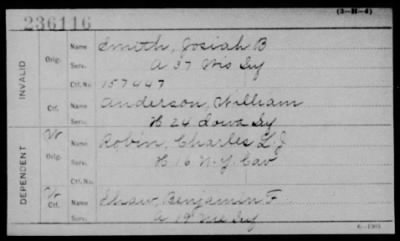 (3-H-4)
236116
INVALID
Orig.
Name Smith, Josiah B
Serv. A 37 Wis Inf
Ctf. No. 157447
Ctf.
Name Anderson, William
Serv. B 24 Iowa Inf
DEPENDENT
W
Orig.
Name Robin, Charles L. J
Serv. B 16 N.Y. Cav
Ctf. No.
W
Ctf.
Name Shaw, Benjamin F
Serv. A 19 Me Inf
6-1901